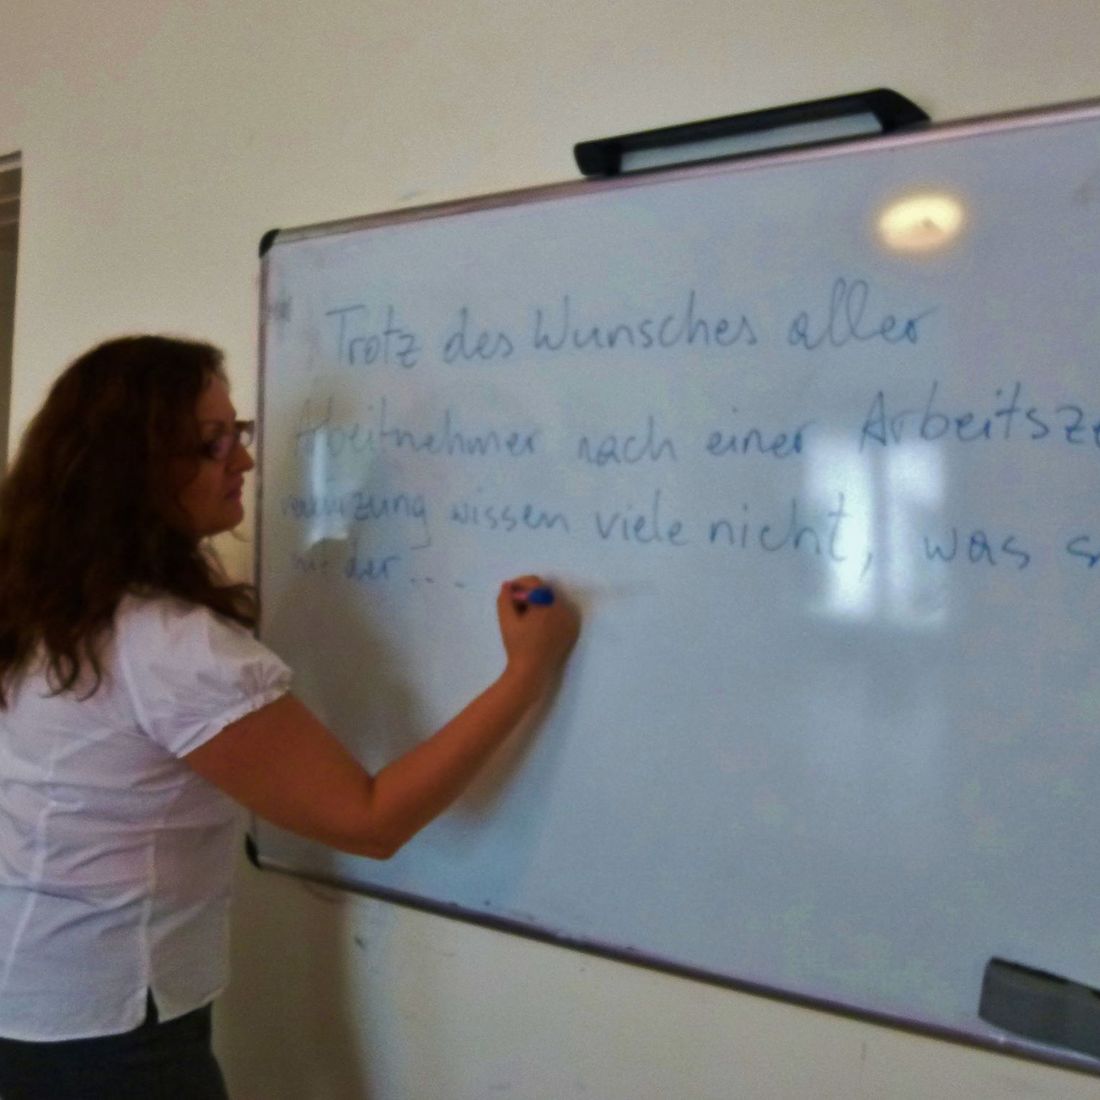 Trotz des Wunsches aller
Arbeitnehmer nach einer Arbeitsze
verkürzung wissen viele nicht, was s
mit der ...